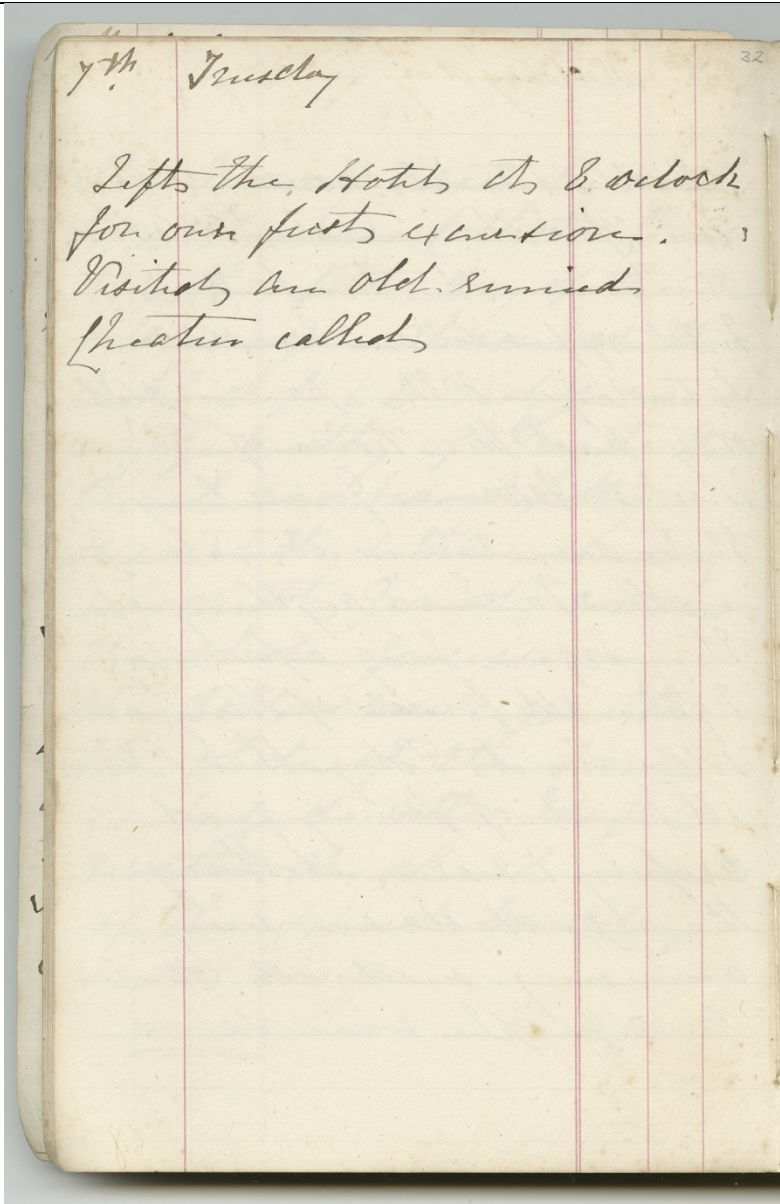 32
7th Tuesday
Left the Hotel at 8 oclock
for our first excursion.
Visited an old ruined
theatre called